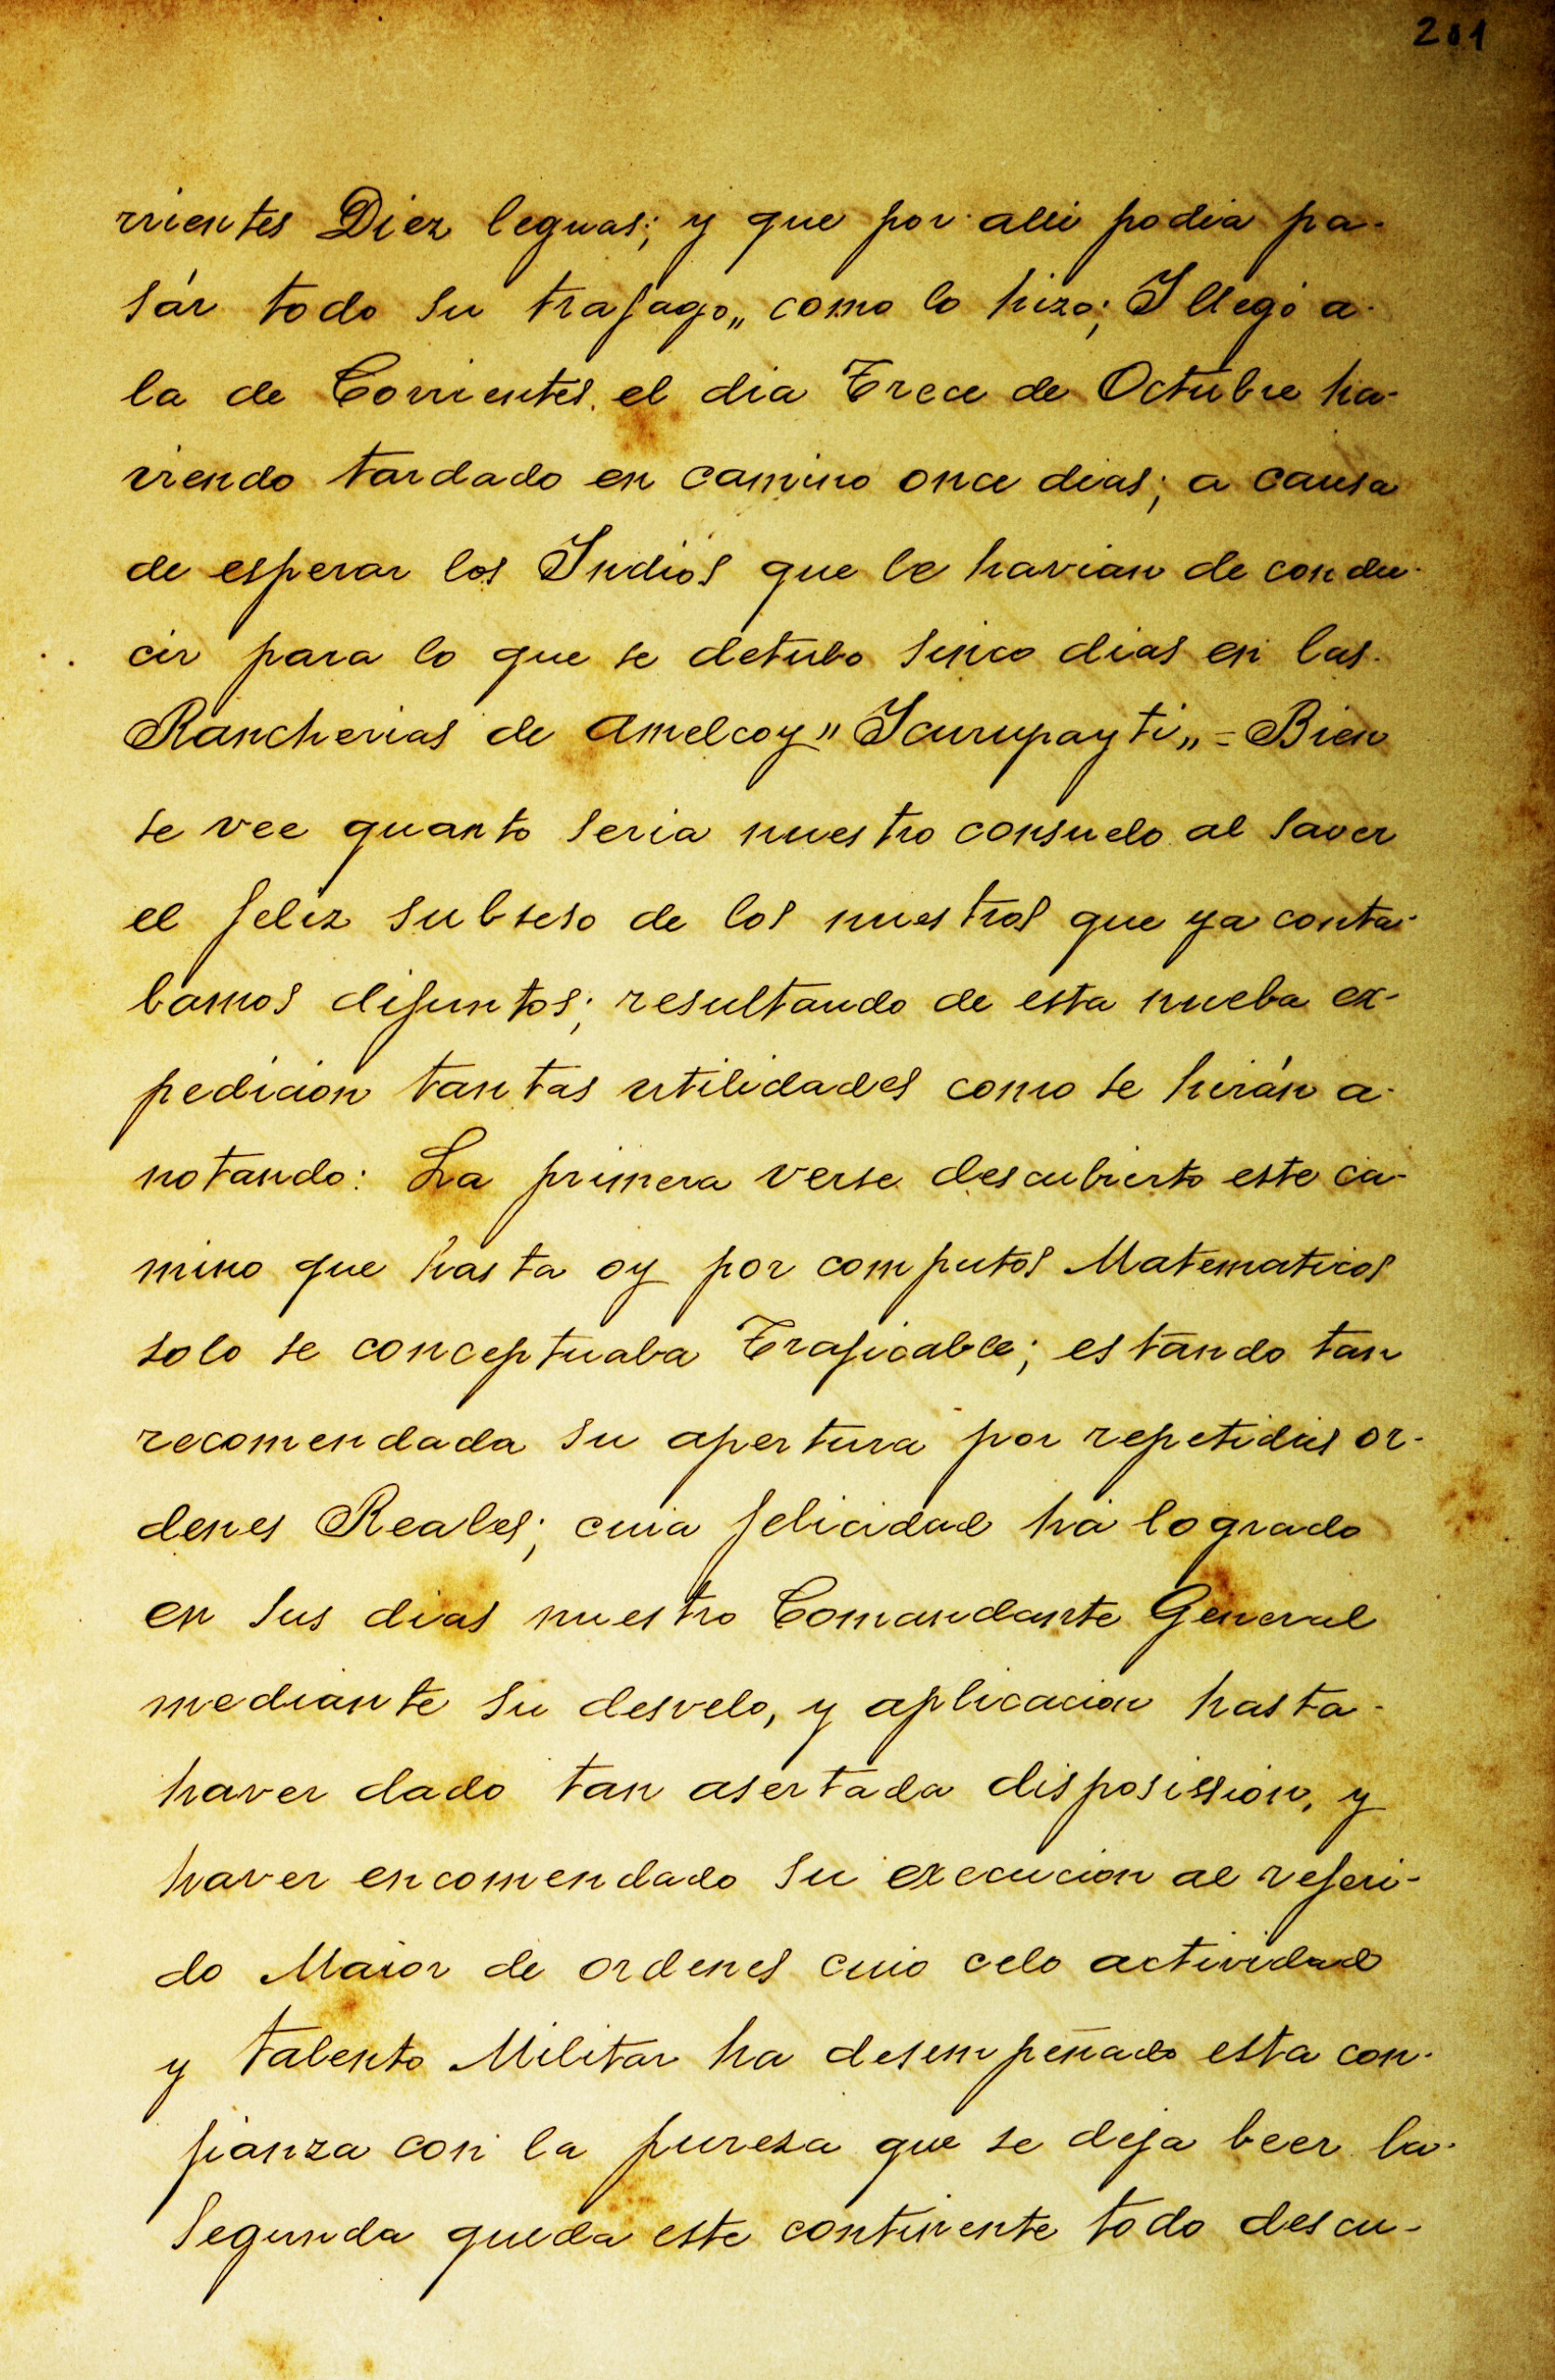 201
rrientes Diez leguas; y que por alli podia pa-
sár todo su trafago,, como lo hizo; I llegó a-
la de Corrientes el dia Trece de Octubre ha-
viendo tardado en camino once dias; a causa
de esperar los Indios que le havian de condu-
cir para lo que se detubo sinco dias en las
Rancherias de Amelcoy" Icurupayti,, = Bien
se vee quanto seria nuestro consuelo al saver
el feliz subseso de los nuestros que ya conta-
bamos difuntos; resultando de esta nueba ex-
pedicion tantas utilidades como se hirán a-
notando: La primera verse descubierto este ca-
mino que hasta oy por computos Matematicos
solo se conceptuaba Traficable; estando tan
recomendada su apertura por repetidas or-
denes Reales; cuia felicidad há logrado
en sus dias nuestro Comandante General
mediante su desvelo, y aplicacion hasta-
haver dado tan asertada disposission, y
haver encomendado su execucion al referi-
do Maior de ordenes cuio celo actividad
y talento Militar ha desempeñado esta con-
fianza con la puresa que se deja beer la-
segunda queda este continente todo descu-